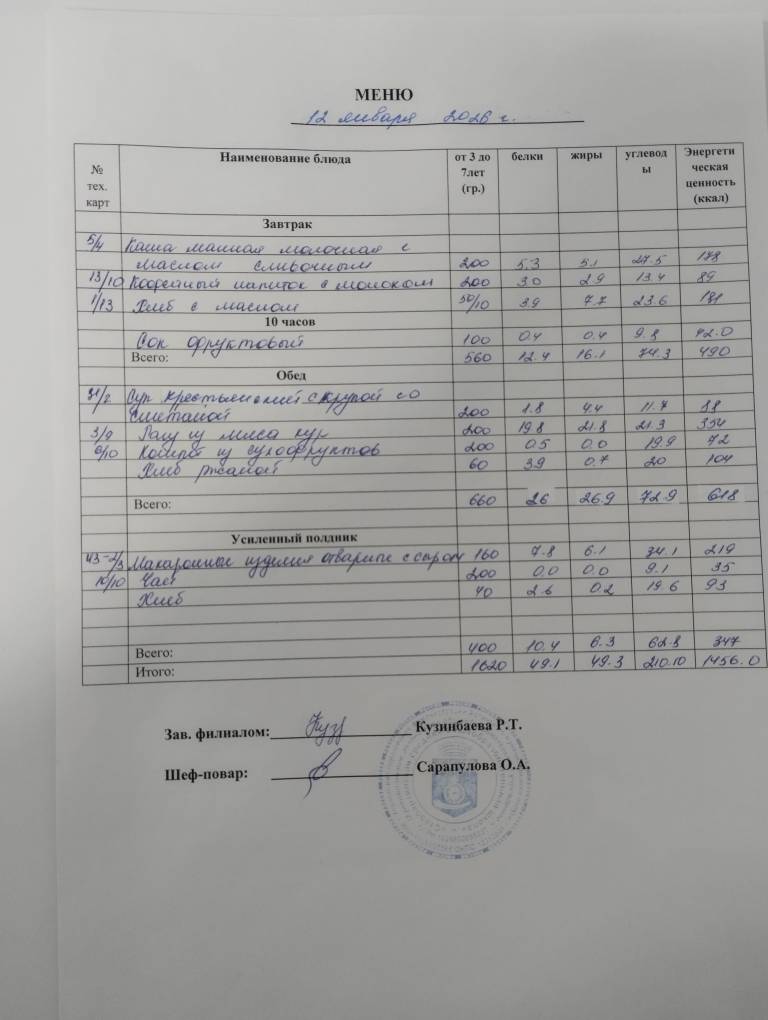 МЕНЮ
12 января 2026 г.
№ тех. карт Наименование блюда от 3 до 7лет (гр.) белки жиры углеводы Энергетическая ценность (ккал)
Завтрак
5/4 Каша манная молочная с
маслом сливочным 200 5.3 5.1 27.5 178
13/10 Кофейный напиток с молоком 200 3.0 2.9 13.4 89
1/13 Хлеб с маслом 50/10 3.9 7.7 23.6 181
10 часов
Сок фруктовый 100 0.4 0.4 9.8 42.0
Всего: 560 12.4 16.1 74.3 490
Обед
31/2 Суп крестьянский с крупой со
сметаной 200 1.8 4.4 11.7 88
3/9 Рагу из мяса кур 200 19.8 21.8 21.3 354
6/10 Компот из сухофруктов 200 0.5 0.0 19.9 72
Хлеб ржаной 60 3.9 0.7 20 104
Всего: 660 26 26.9 72.9 618
Усиленный полдник
43-2/3 Макаронные изделия отварные с сыром 160 7.8 6.1 34.1 219
10/10 Чай 200 0.0 0.0 9.1 35
Хлеб 40 2.6 0.2 19.6 93
Всего: 400 10.4 6.3 62.8 347
Итого: 1620 49.1 49.3 210.10 1456.0
Зав. филиалом: Кузинбаева Р.Т.
Шеф-повар: Сарапулова О.А.